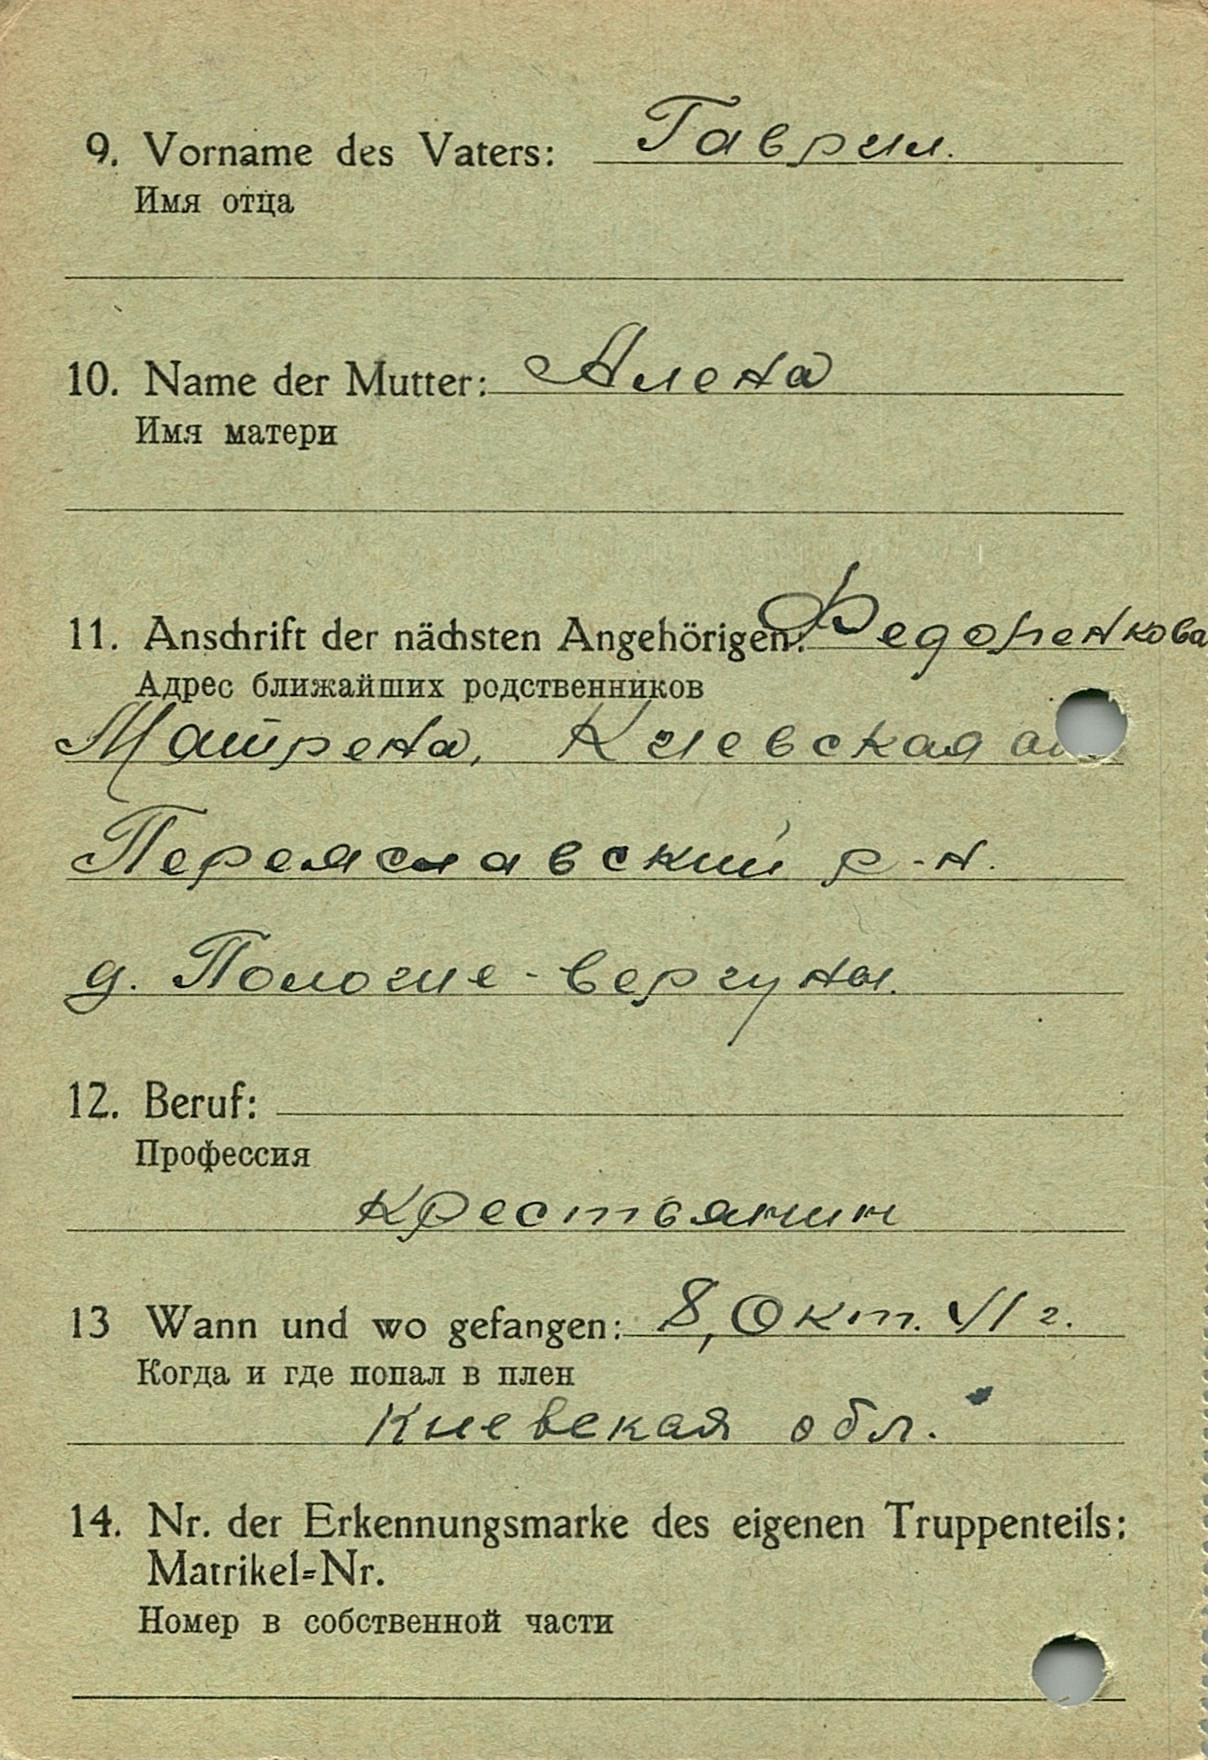 9. Vorname des Vaters: Гаврил.
Имя отца
10. Name der Mutter: Алена
Имя матери
11. Anschrift der nächsten Angehörigen: Федоренкова
Адрес ближайших родственников
Матрена, Киевская
Переяславский р-н.
д. Пологие-вергуны.
12. Beruf:
Профессия
крестьянин
13 Wann und wo gefangen: 8, Окт. 41 г.
Когда и где попал в плен
Киевская обл.
14. Nr. der Erkennungsmarke des eigenen Truppenteils:
Matrikel=Nr.
Номер в собственной части